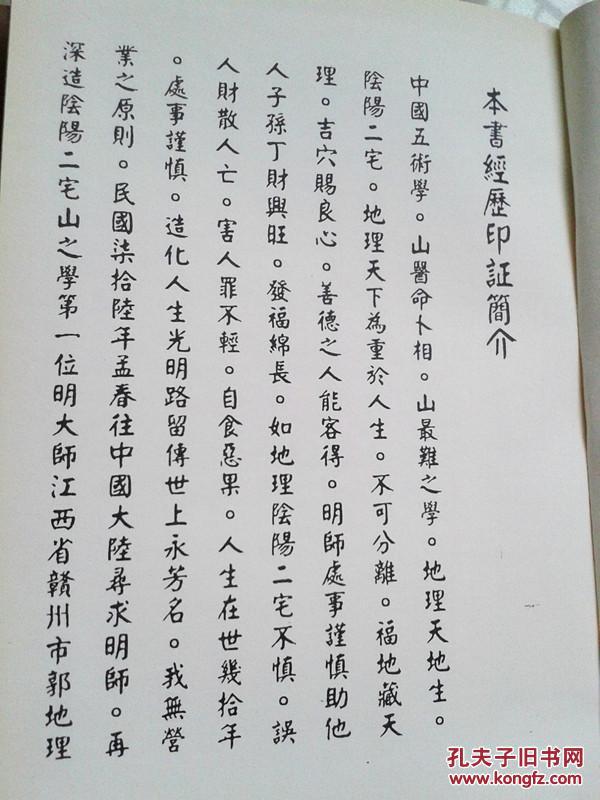 本書經歷印証簡介
中國五術學。山醫命卜相。山最難之學。地理天地生。
陰陽二宅。地理天下為重於人生。不可分離。福地藏天
理。吉穴賜良心。善德之人能客得。明師處事謹慎助他
人子孫丁財興旺。發福綿長。如地理陰陽二宅不慎。誤
人財散人亡。害人罪不輕。自食惡果。人生在世幾拾年
。處事謹慎。造化人生光明路留傳世上永芳名。我無營
業之原則。民國柒拾陸年孟春往中國大陸尋求明師。再
深造陰陽二宅山之學第一位明大師江西省贛州市郭地理
孔夫子旧书网
www.kongfz.com